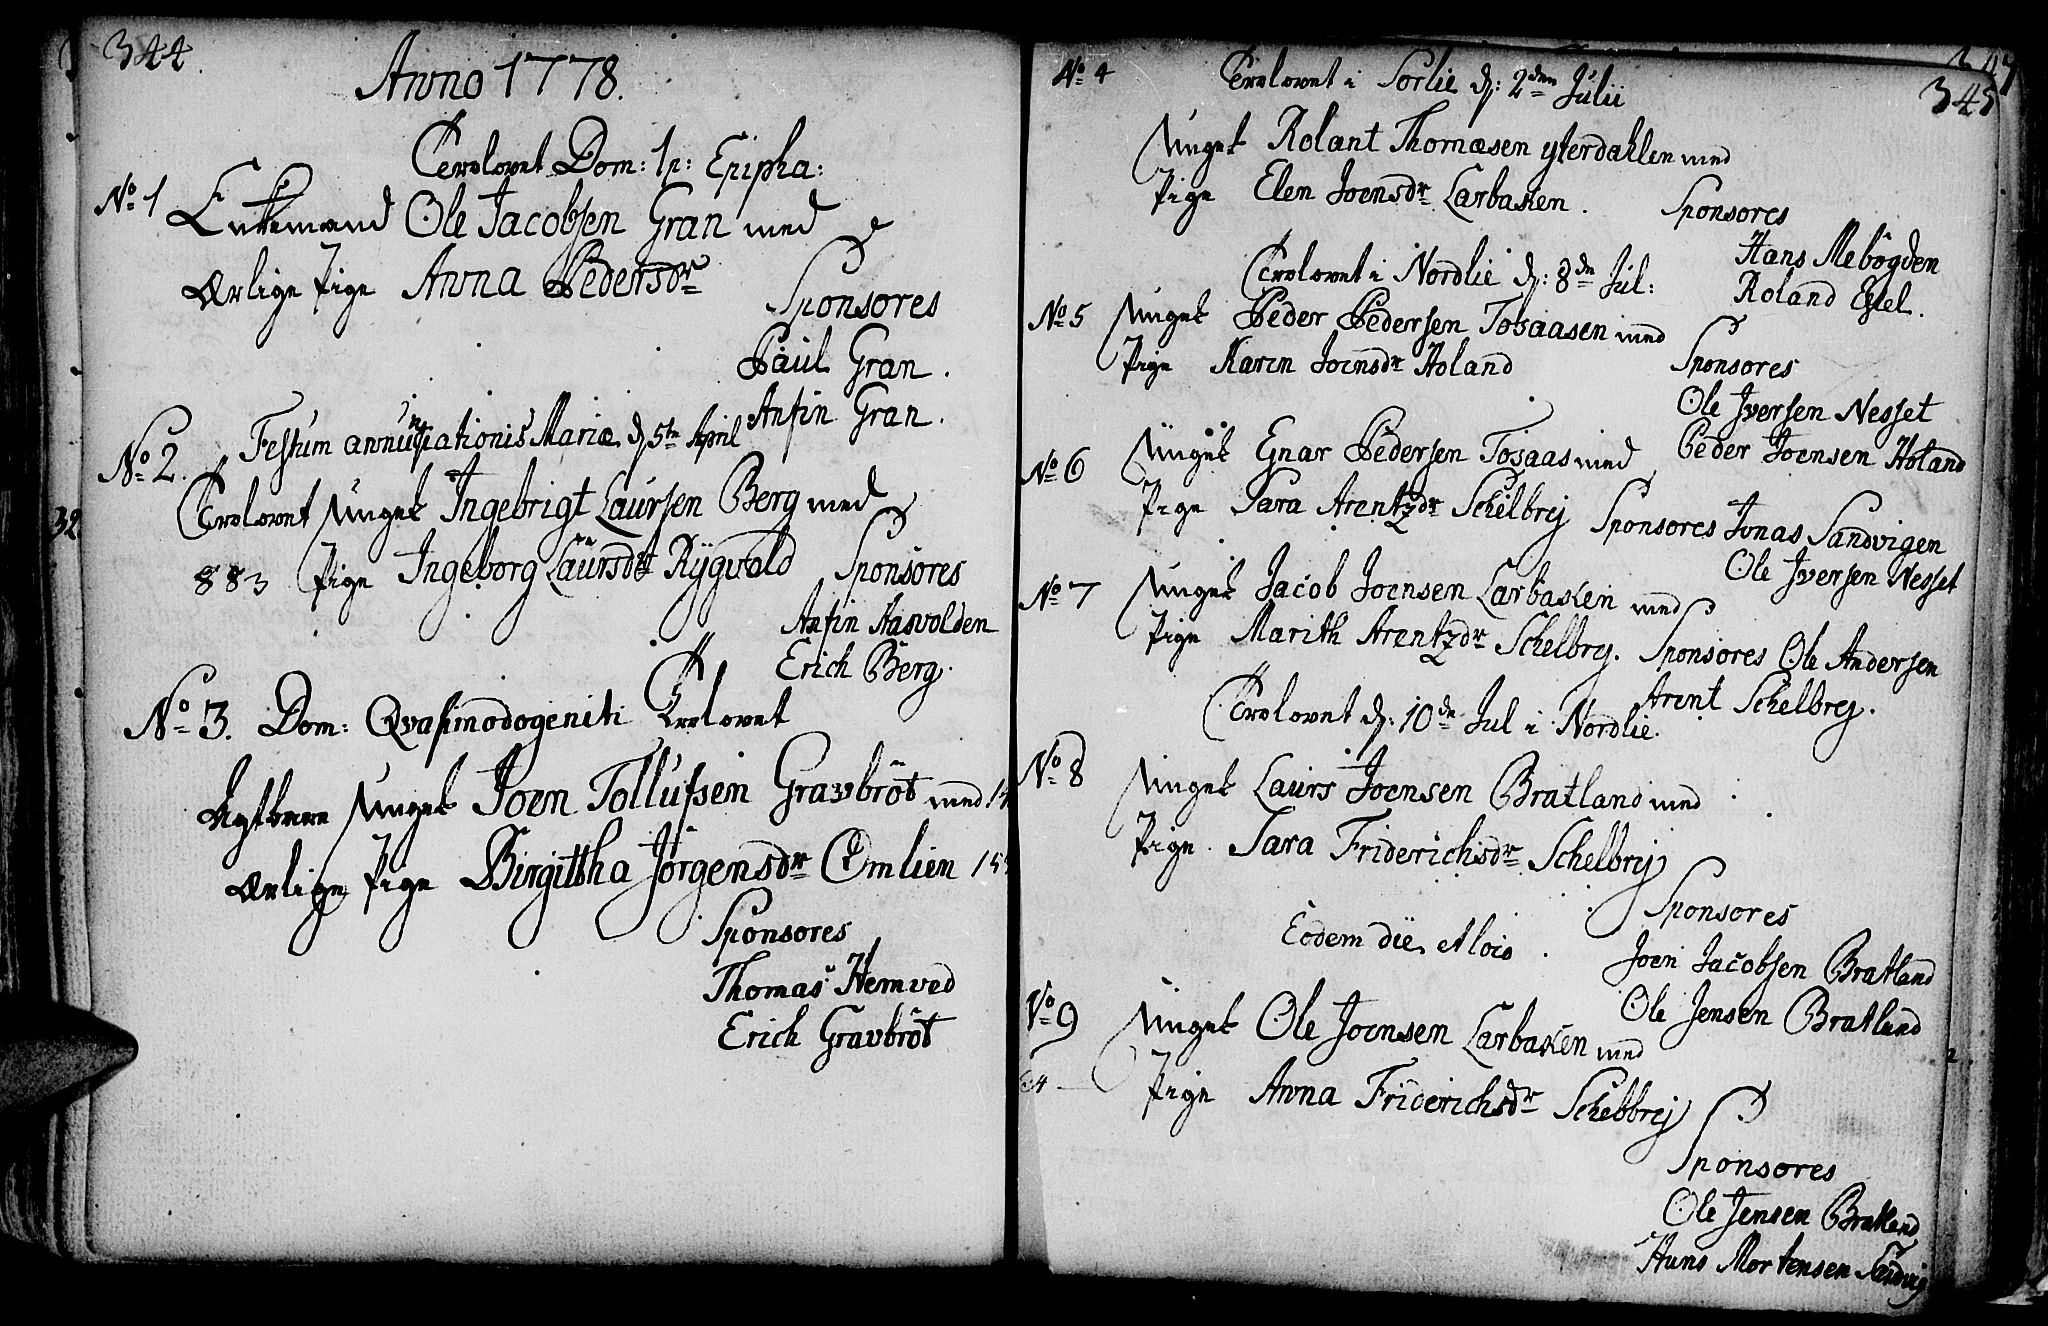 344.
Anno 1778.
Trolovet Dom: 1 p: Epipha:
No 1 Enkemand Ole Jacobsen Gran med
Ærlige Pige Anna Pedersdr
Sponsores
Paul Gran.
Anfin Gran.
No 2. Festum annunciationis Mariæ d. 5te April
Trolovet Unget Ingebrigt Laursen Berg med
883 Pige Ingeborg Laursdr Rygvold Sponsores
Anfin Aasvolden
Erich Berg.
No 3. Dom: Qvasimodogeniti Trolovet
Agtbare Unget Joen Tollufsen Gravbrôt med
Ærlige Pige Birgittha Jörgensdr Omlien
Sponsores
Thomas Hemved
Erich Gravbrôt
345
No 4 Trolovet i Sorlie d: 2den Julii
Unget Rolant Thomæsen ÿterdahlen med
Pige Elen Joensdr Larbaken. Sponsores
Hans Mebögden
Roland Estel.
Trolovet i Nordlie d: 8de Jul:
No 5 Unget Peder Pedersen Tosaasen med
Pige Karen Joensdr Holand Sponsores
Ole Iversen Nesset
Peder Joensen Holand
No 6 Unget Enar Pedersen Tosaas med
Pige Sara Arentzdr Schelbrej Sponsores Jonas Sandvigen
Ole Iversen Nesset
No 7 Unget Jacob Joensen Larbasken med
Pige Marith Arentzdr Schelbrej. Sponsores Ole Andersen
Arent Schelbrej.
Trolovet d: 10de Jul i Nordlie.
No 8 Unget Laurs Joensen Bratland med
Pige Sara Friderichsdr Schelbrej
Sponsores
Joen Jacobsen Bratland
Ole Jensen Bratland
Eodem die et loco.
No 9 Unget Ole Joensen Larbasken med
Pige Anna Friderichsdr Schelbrej
Sponsores
Ole Jensen Bratland
Hans Mortensen